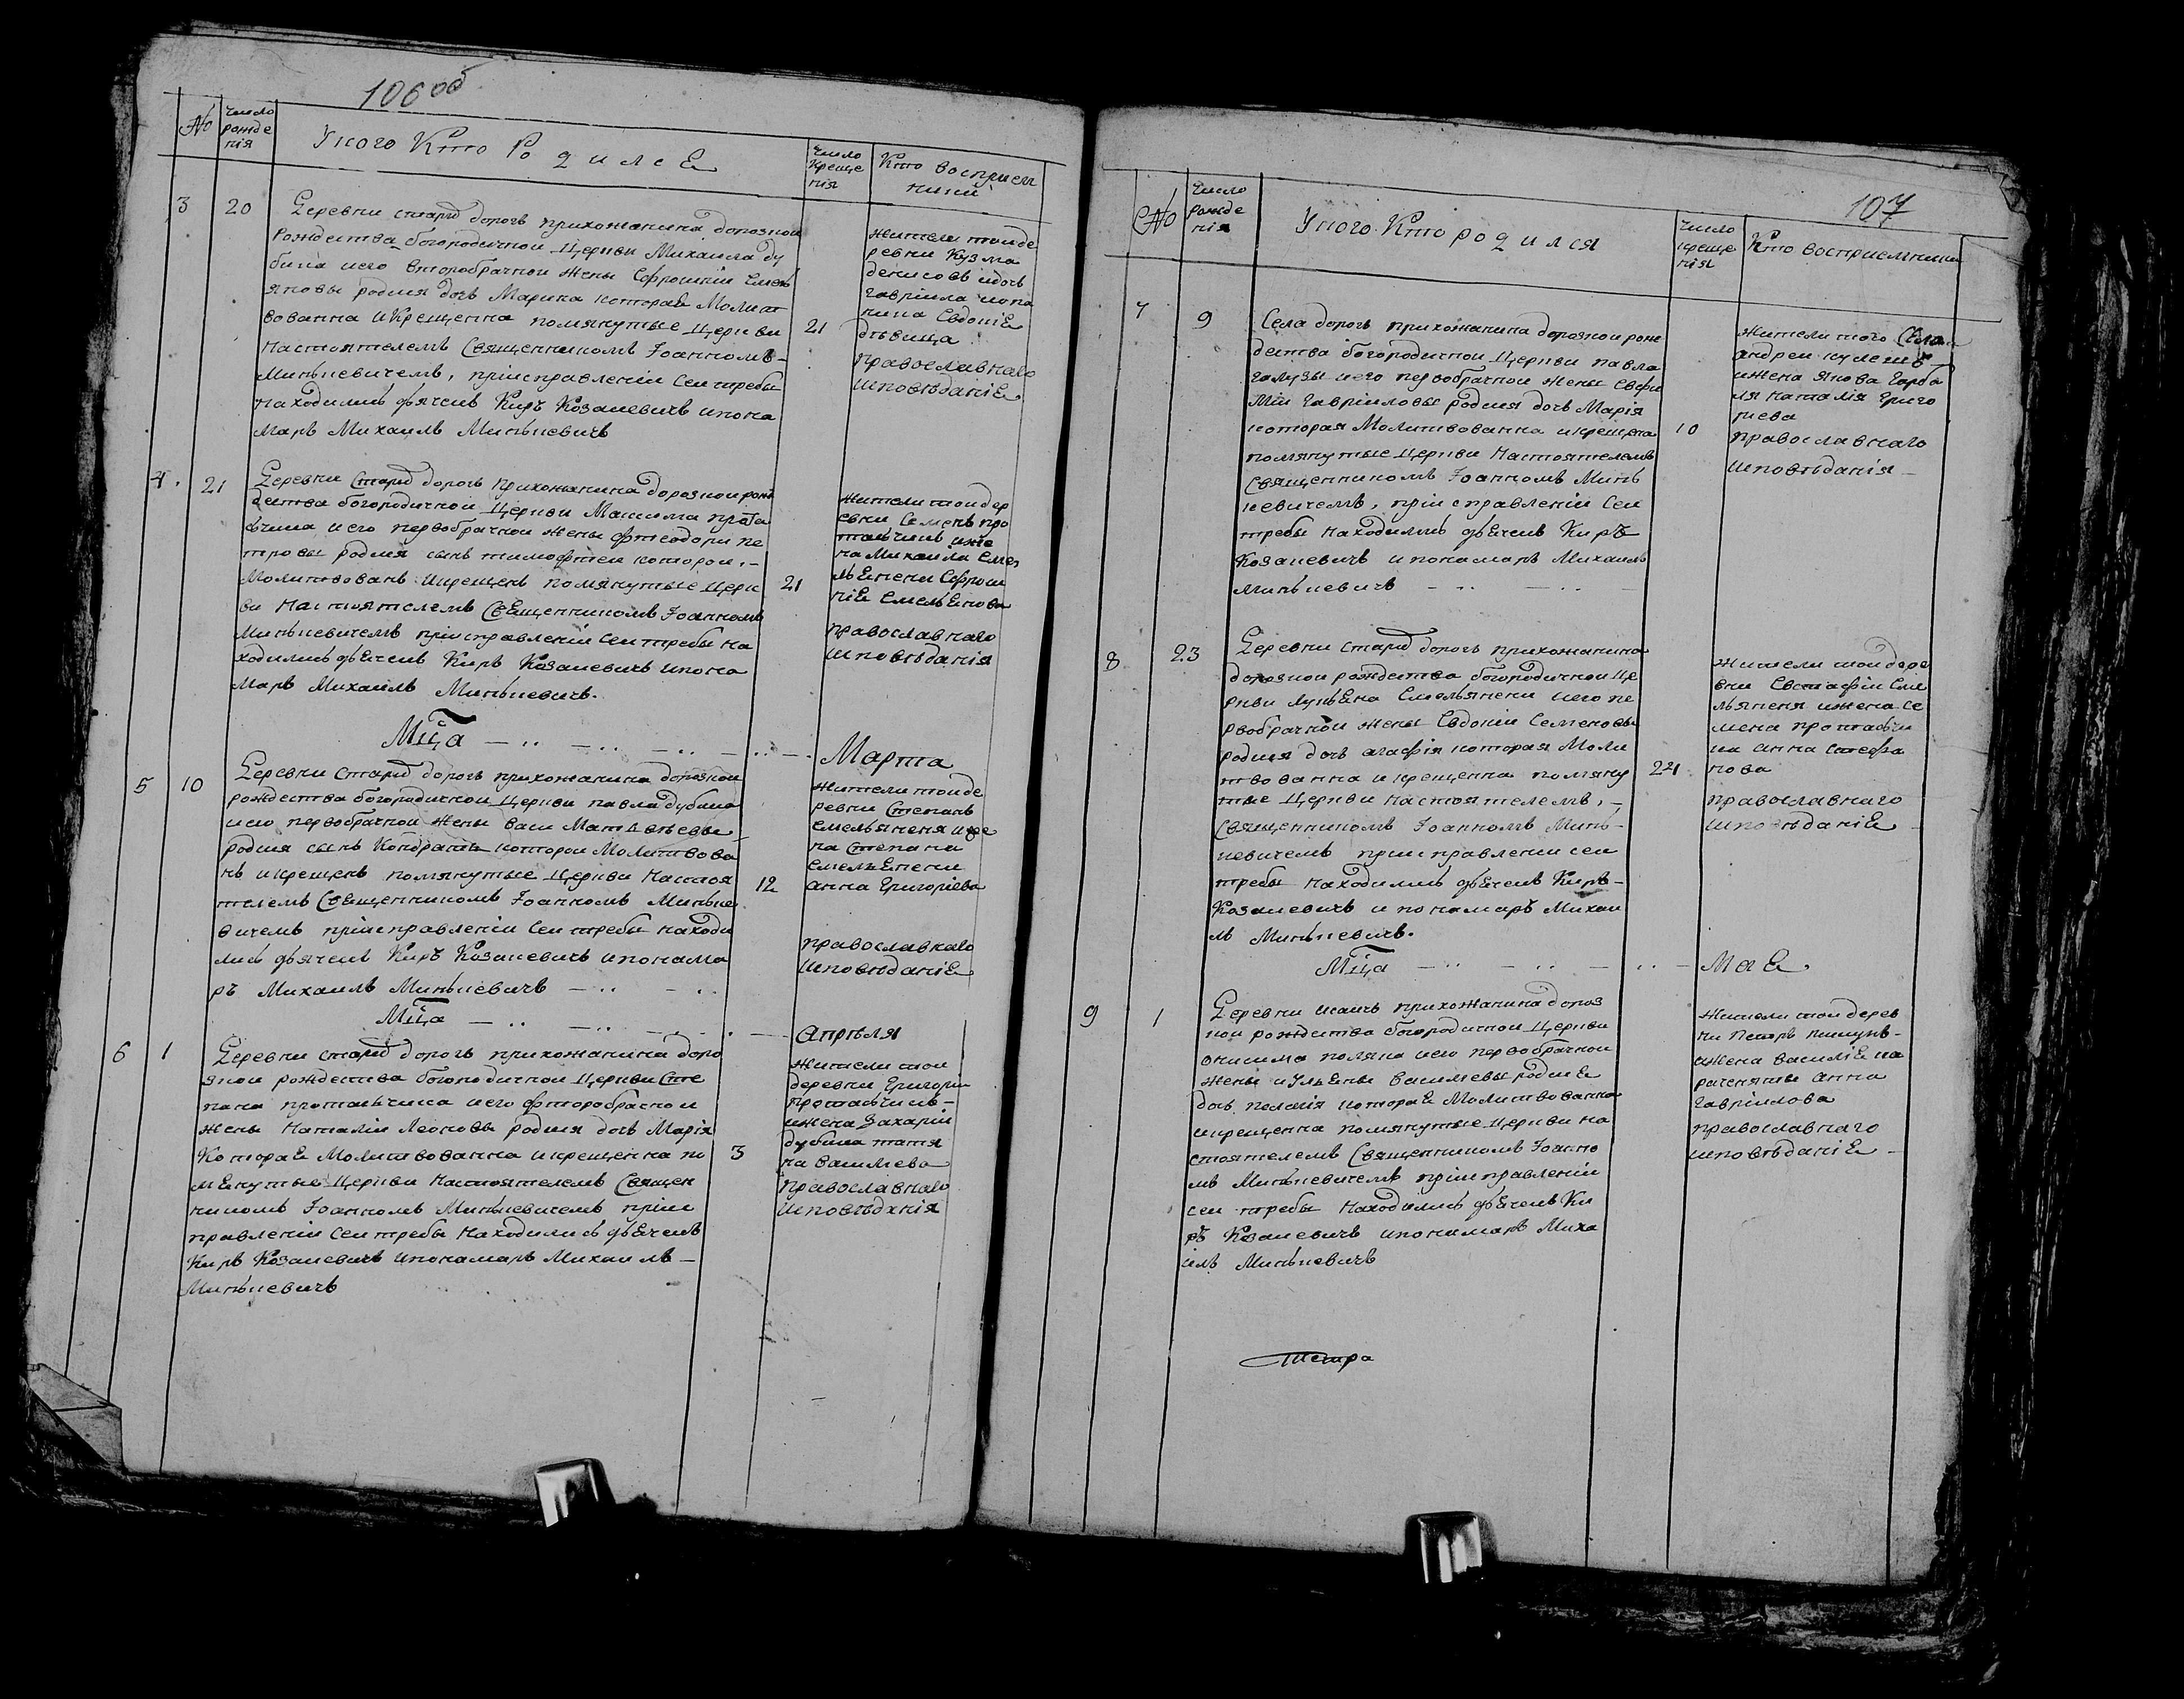 106об
№
Число рожде нія
У кого Кто Родилсе
Число Креще нія
Кто воспрiем ники
3
20
Деревни стары дорогъ прихожанина дорозкои
Рождества богородичнои Церкви Михаила Ду
бика иего второбрачнои жены Софрошкiи Емель
яновы родися дочь Марина которае Молит
вованна и Крещенна помянутые Церкви
Настоятелемъ Священникомъ Iоанномъ
Минькевичемъ, приисправленіи сеи требы
Находились дьячекъ Киръ Козакевичъ ипона
маръ Михаилъ Минькевичъ
21
жители тоиде
ревни Кузма
денисовъ идочь
Гаврiила
Евдокiе
дѣвица
православнаго
исповѣданiе
4.
21
Деревни Стары дорогъ прихожанина дорозкои рож
дества богородичнои Церкви Максима прота
вчика иего первобрачнои жены фтеодори пе
тровы родися сынъ тимофтеи которои,
Молитвованъ икрещенъ помянутые церк
ви Настоятелемъ Священникомъ Iоанномъ
Минькевичемъ приисправленiи сеи требы на
ходились дьячекъ Киръ Козакевичъ ипона
маръ Михаилъ Минькевичъ.
21
жители тоидер
евни Семенъ про
тавчикъ иже
на Михаила Емел
ьЕнени Софрош
нiе Емельенова
православнаго
исповѣданiя
Мца Марта
5
10
Деревни Стары дорогъ прихожанина дорозкои
рождества богородичнои Церкви павла дубика
иего первобрачнои жены васи Матвѣевы
родися сынъ Кондратъ которои Молитвова
нъ икрещенъ помянутые Церкви Настоя
телемъ Священникомъ Iоанномъ Минькe
вичемъ приисправленiи сеи требы находи
лись дьячекъ Киръ Козакевичъ ипонама
ръ Михаилъ Минькевичъ
12
жители тоиде
ревни Степанъ
емельяненя иже
на Степана
емельЕнени
анна Григорiева
православнаго
исповѣданiе
Мца Апрѣля
6
1
Деревни стары дорогъ прихожанина доро
зкои рождества богородичнои Церкви Сте
пана протавчика иего фторобрачнои
жены Наталiи Леоновы родися дочь Марiя
Которае Молитвованна икрещенна по
мЕнутые Церкви Настоятелемъ Священ
никомъ Iоанномъ Минькевичемъ прiис
правленiи сеи требы Находились дьЕчекъ
Киръ Козакевичъ ипонамаръ Михаилъ
Минькевичъ
3
жители тои
деревни Григорiи
протавчикъ
ижена Захарiи
дубика татя
на василева
православнаго
исповѣданiя
107
№
Число рожде нiя
У кого Кто родился
Число креще нiя
Кто восприемники
7
9
Села дорогъ прихожанина дорозкои рож
дества богородичнои Церкви павла
галузы иего первобрачнои жены Евфи
мiи Гаврiиловы родися дочь Марiя
которая Молитвованна икрещена
помянутые Церкви Настоятелемъ
Священникомъ Iоанномъ Минь
кевичемъ, приисправленiи сеи
требы находились дьЕчекъ Киръ
Козакевичъ ипонамаръ Михаилъ
Минькевичъ
10
жители того Села
андреи кулешъ
ижена якова Горба
ля Наталiя Григо
риева
православнаго
исповѣданiя
8
23
Деревни стары дорогъ прихожанина
дорозкои рождества богородичнои Це
ркви лукьЕна Емельянени иего пе
рвобрачнои жены Евдокiи Семеновы
родися дочь агафiя которая Моли
твованна икрещенна помяну
тые Церкви Настоятелемъ,
Священникомъ Iоанномъ Минь
кевичемъ приисправлении сеи
требы находились дьЕчекъ Киръ
Козакевичъ ипонамаръ Михаи
лъ Минькевичъ.
24
жители тои дере
вни Евстафiи Еме
льяненя ижена се
мена протавчи
ка анна стефа
нова
православнаго
исповѣданiЕ
Мца МаЕ
9
1
Деревни прихожанина дороз
кои рождества богородичнои Церкви
онисима поляка иего первобрачнои
жены иульЕны василевы родисЕ
дочь пелагiя котораЕ Молитвованна
икрещенна помянутые Церкви на
стоятелемъ Священникомъ Iоанно
мъ Минькевичемъ приисправленiи
сеи требы Находились дьЕчекъ Ки
ръ Козакевичъ ипонамаръ Миха
илъ Минькевичъ
жители тои дерев
ни Петръ
ижена василiЕ
анна
Гаврiилова
православнаго
исповѣданiЕ